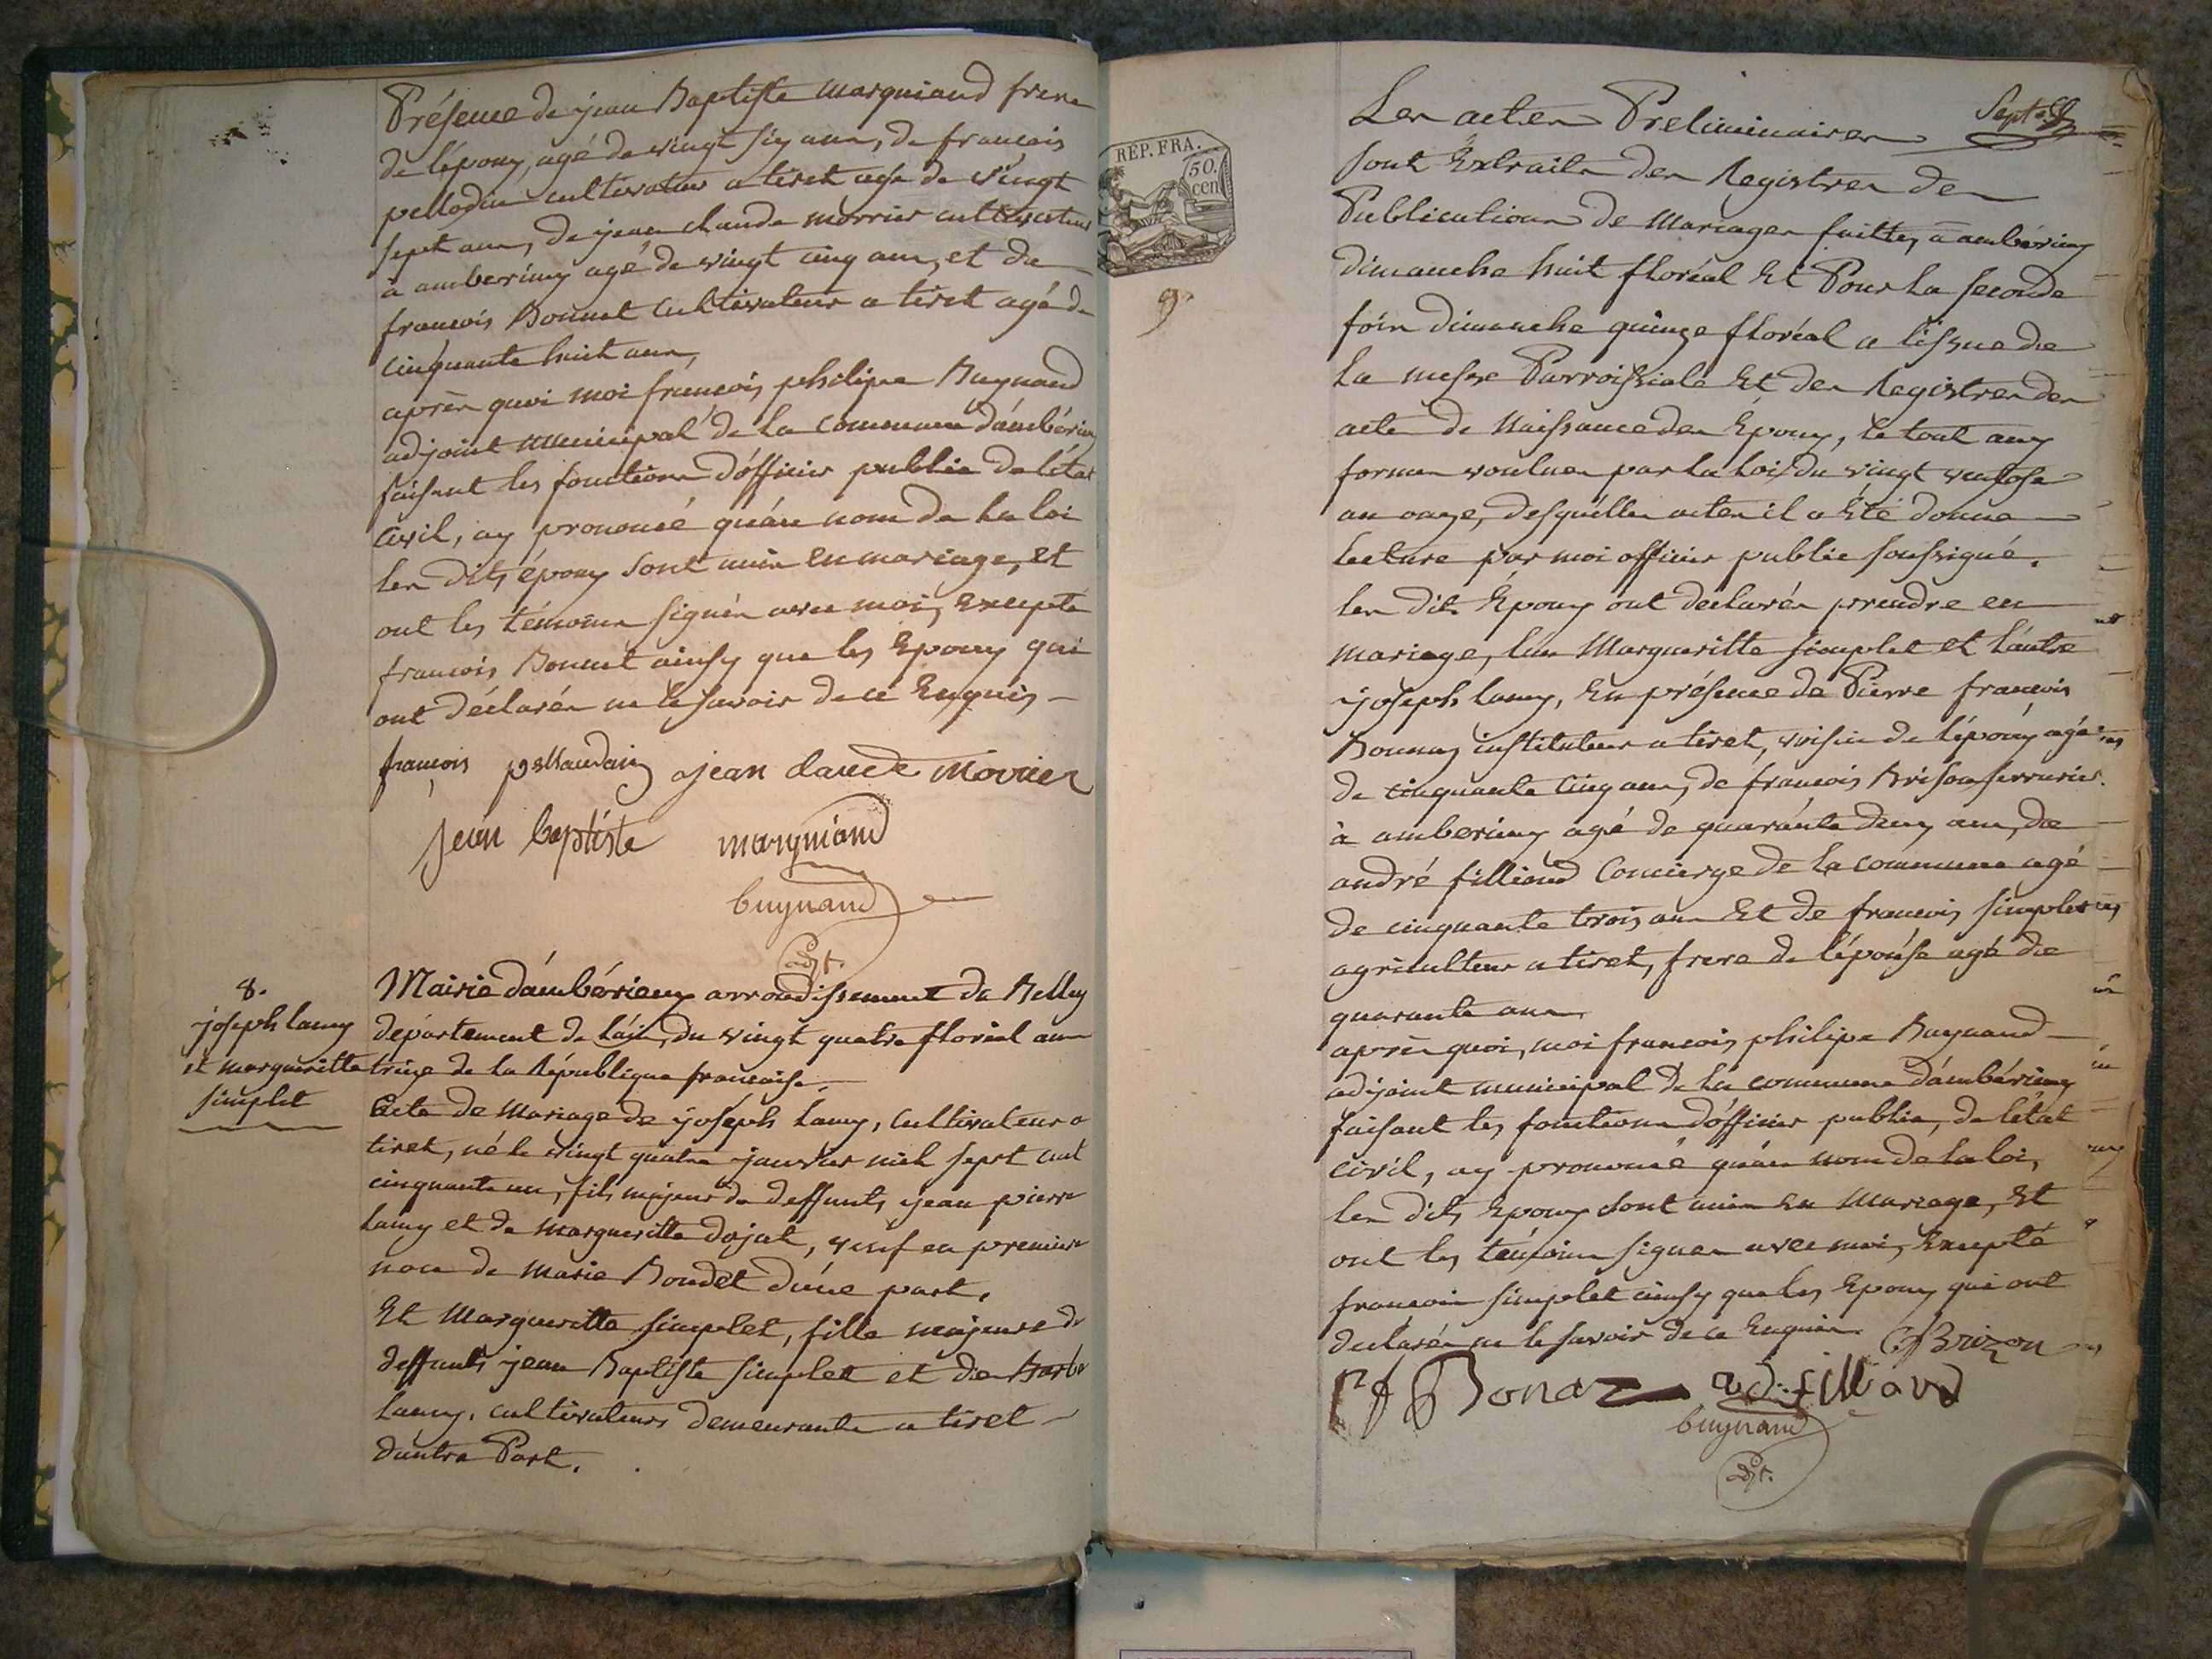 Présence de jean Baptiste marguiand frere
de l'époux, agé de vingt six ans, de francois
pellodin cultivateur a tiret age de vingt
sept ans, de jean claude morrier cultivateur
à amberieux agé de vingt cinq ans, et de
francois Bonnet cultivateur a tiret agé de
cinquante huit ans,
après quoi moi francois philipe Buynand
adjoint municipal de la commune d'ambérieux
faisant les fonctions d'officier public de l'état
civil, ay prononcé qu'au nom de la loi
les dits époux sont unis en mariage, et
ont les témoins signés avec moi, excepté
francois Bonnet ainsy que les Epoux qui
ont déclarés ne le savoir de ce Enquis –
françois pellaudain jean claude Movrier
jean baptiste marguiand
buynand
adjt.
8.
joseph lamy
et margueritte
simplet
Mairie d'ambérieux arrondissement de Belley
département de l'ain, du vingt quatre floréal an
treize de la République francaise.
Acte de Mariage de joseph Lamy, Cultivateur a
tiret, né le vingt quatre janvier mil sept cent
cinquante un, fils majeur de deffunts jean pierre
Lamy et de margueritte dojat, veuf en premiere
noce de marie Boudet d'une part,
Et Margueritte simplet, fille majeure de
deffunts jean Baptiste simplet et de Barbe
Lamy, cultivateurs demeurante a tiret –
d'autre Part.
REP. FRA.
50.
cen
9.
Sept
Les actes Preliminaires
sont Extraits des Registres de
Publications de Mariages faittes a ambérieux
dimanche huit floréal Et Pour la seconde
fois dimanche quinze floréal a l'issue de
la messe Parroissiale Et des Registres des
acte de Naissance des Epoux, le tout aux
formes voulues par la Loi du vingt ventose
an onze, desquelles actes il a Eté donné
lecture par moi officier public soussigné.
les dits Epoux ont declarés prendre en
mariage, lun Margueritte simplet et l'autre
joseph lamy, En présence de Pierre francois
Bonnaz instituteur a tiret, voisin de l'époux agé
de cinquante cinq ans, de francois Brison serrurier
à amberieux agé de quarante deux ans, de
andré filliand Concierge de la commune agé
de cinquante trois ans Et de francois simplet
agriculteur a tiret, frere de l'épouse agé de
quarante ans
après quoi, moi francois philipe Buynand
adjoint municipal de la commune d'ambérieux
faisant les fonctions d'officier public, de l'état
civil, ay prononcé qu'au nom de la loi,
les dits Epoux sont unis En Mariage, Et
ont les témoins signes avec moi, Excepté
francois simplet ainsy que les Epoux qui ont
declarés ne le savoir de ce Enquis. Brizon
Bonaz ad. filliand
buynand
adjt.